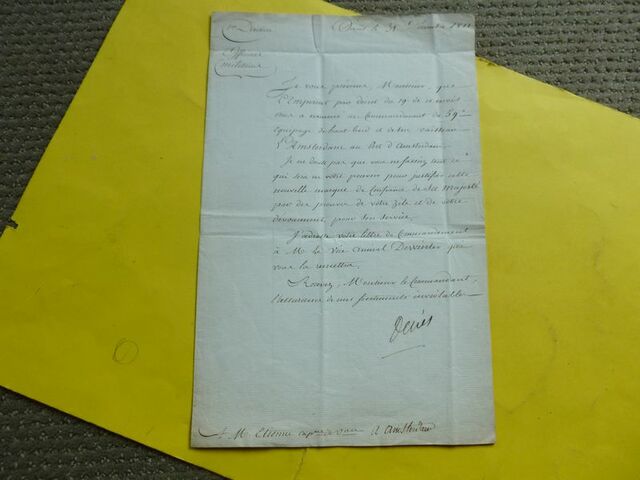 Division
Paris le 31 décembre 1811
Officiers
militaires
Je vous préviens, Monsieur, que
l'Empereur par décret du 19 de ce mois
vous a nommé au Commandement du 59e
équipage de haut bord et de son vaisseau
l'Amsterdam au Port d'Amsterdam.
Je ne doute pas que vous ne fassiez tout ce
qui sera en votre pouvoir pour justifier cette
nouvelle marque de confiance de Sa Majesté
par des preuves de votre zèle et de votre
dévouement pour son service.
J'adresse votre lettre de Commandement
à M. le Vice amiral Dewinter pour
vous la remettre.
Recevez, Monsieur le Commandant,
l'assurance de mes sentiments inviolables
Decrès
A M. Etienne capne de vau à Amsterdam